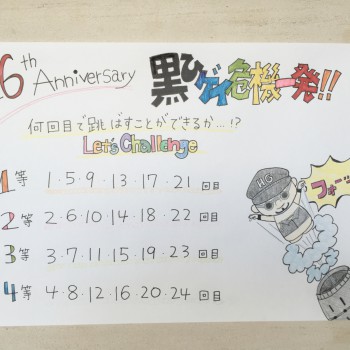 6th Anniversary
黒ひゲイ危機一発!!
何回目で跳ばすことができるか…!?
Let's Challenge
1等 1・5・9・13・17・21 回目
2等 2・6・10・14・18・22 回目
3等 3・7・11・15・19・23 回目
4等 4・8・12・16・20・24 回目
HG
フォー